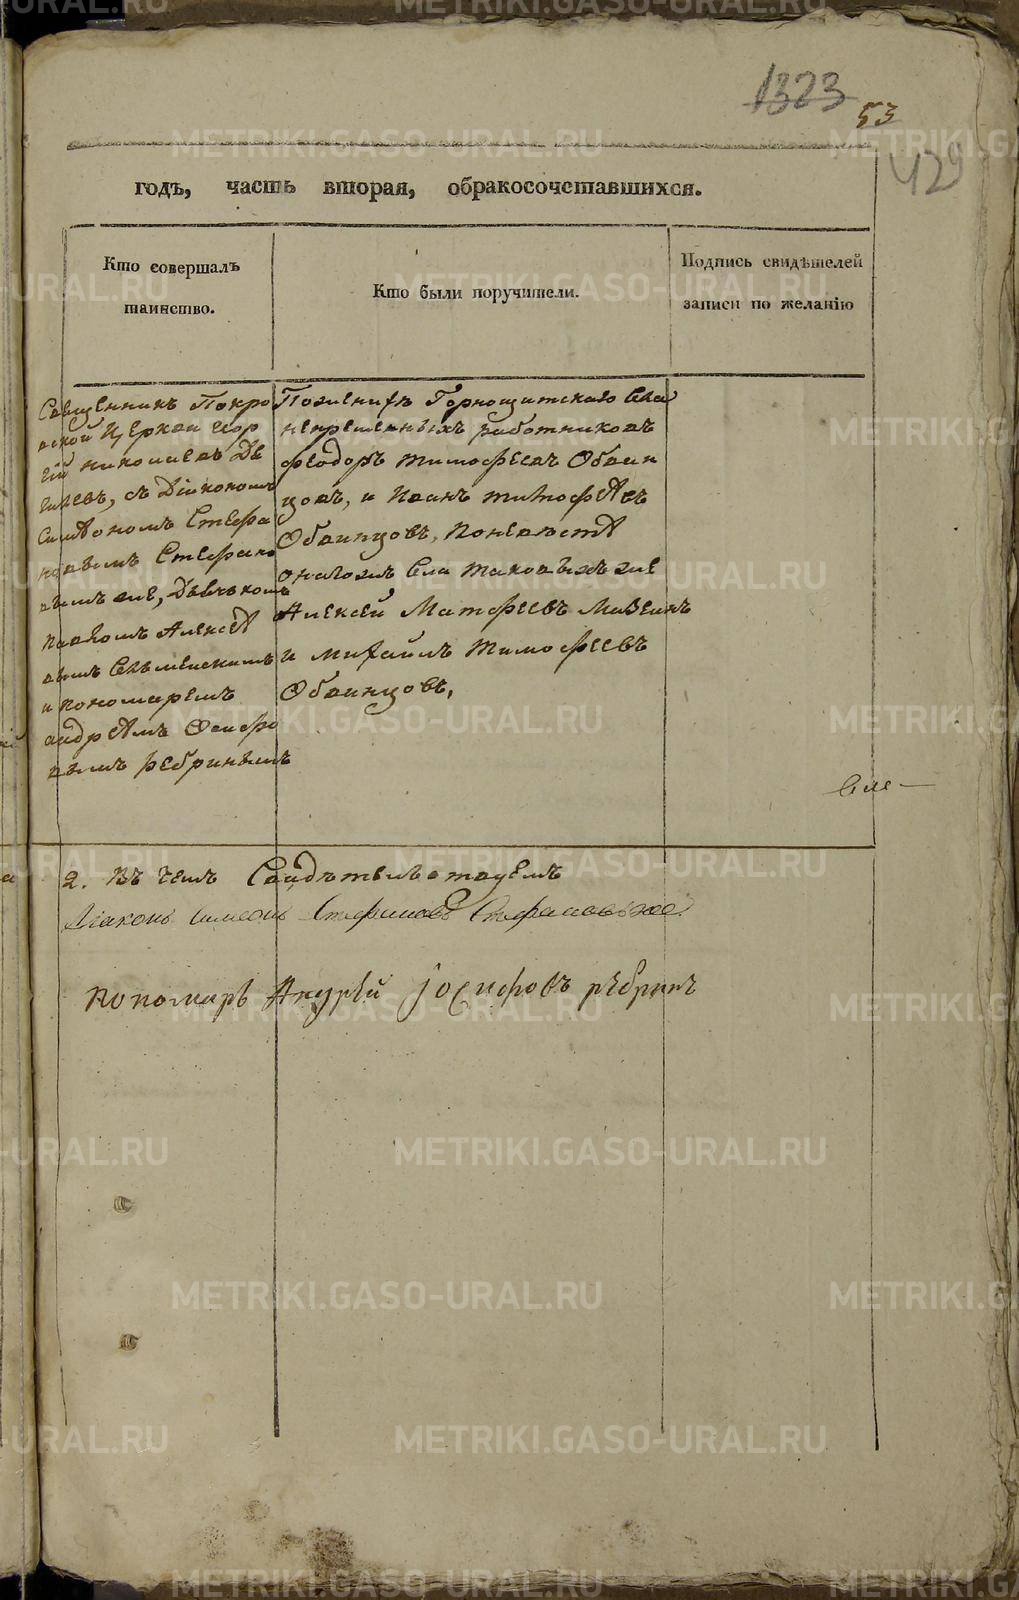 1323
53
429
годъ, часть вторая, обракосочетавшихся.
Кто совершалъ
таинство.
Кто были поручители.
Подпись свидѣтелей
записи по желанію
Священникъ Покро
вской Церкви Геор
гій Николаевъ
съ Діякономъ
Симеономъ Стефа
новымъ Стефано
вымъ же, Дьячкомъ
Павломъ Алексѣе
вымъ
и пономаремъ
андреемъ Осифо
вымъ ребринымъ
Поженихѣ Горнощитскаго Села
непременныхъ работниковъ
феодоръ тимофеевъ Обвин
цовъ, и Иванъ тимофеевъ
Обвинцовъ, Поневѣсте
оногожъ Села таковыхъ же
Алексей Матфеевъ
и михайлъ тимофеевъ
Обвинцовъ,
2. Въ чемъ Свидѣтельствуемъ
Діаконъ Симеонъ Стефановъ Стефановыхже
пономарь Андрей Іосифовъ рѣбринъ
METRIKI.GASO-URAL.RU